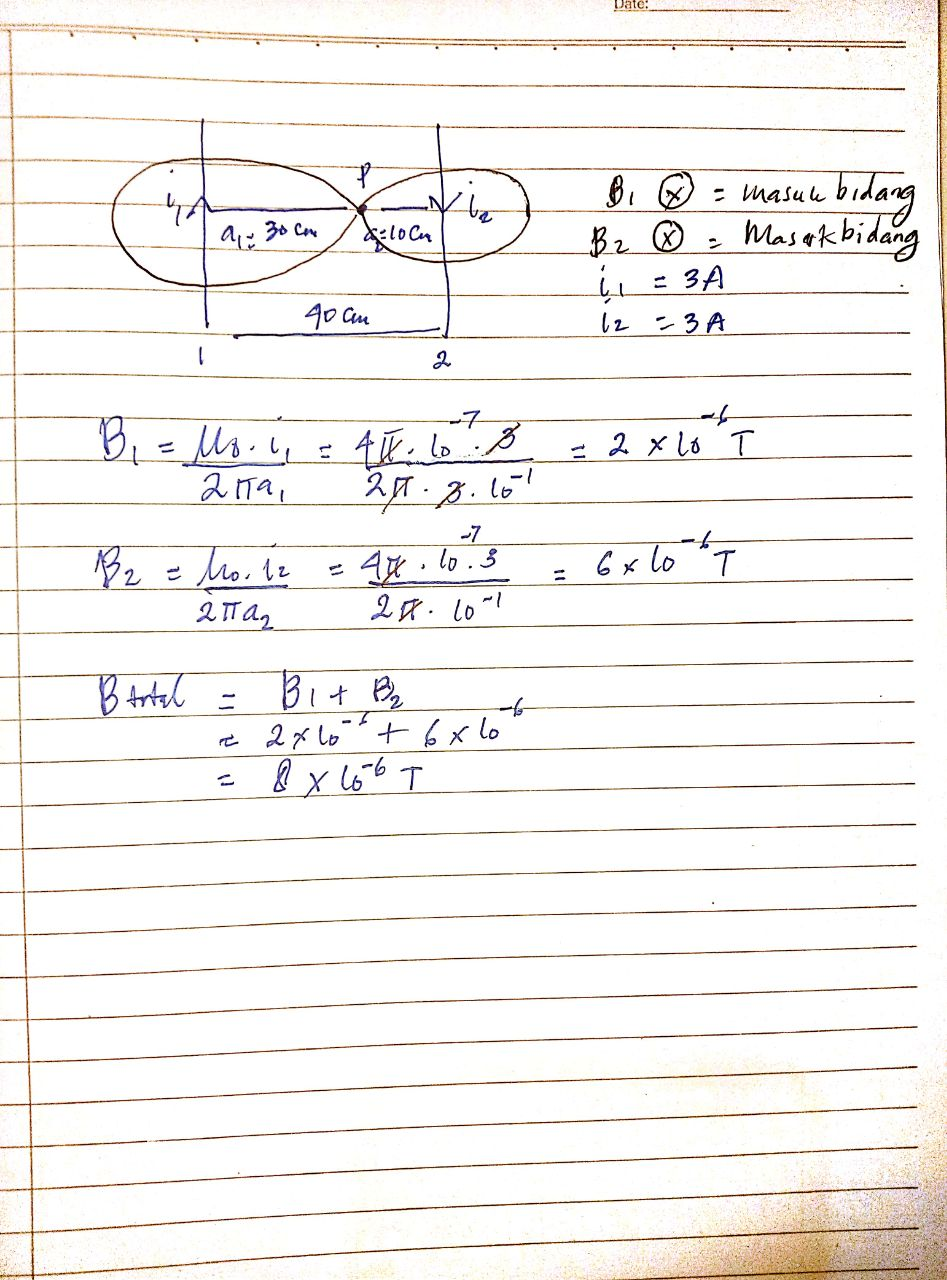 Date:
P
i₁ i₂
a₁ = 30 cm a₂=10 cm
40 cm
1 2
B₁ ⊗ = masuk bidang
B₂ ⊗ = Masuk bidang
i₁ = 3A
i₂ = 3A
B₁ = μ₀.i₁ / 2πa₁ = 4π.10⁻⁷.3 / 2π.3.10⁻¹ = 2 × 10⁻⁶ T
B₂ = μ₀.i₂ / 2πa₂ = 4π.10⁻⁷.3 / 2π.10⁻¹ = 6 × 10⁻⁶ T
B total = B₁ + B₂
= 2×10⁻⁶ + 6×10⁻⁶
= 8 × 10⁻⁶ T